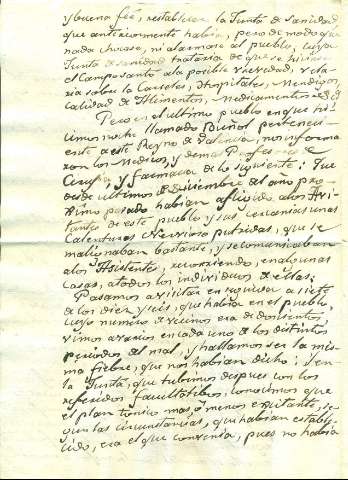 y buena feé, restableser la Junta de Sanidad,
que anteriormente habia, pero de modo que
nada chocase, ni alarmase al pueblo, cuya
Junta de sanidad trataria de que se hiciese
el Campo santo ála posible brevedad, y cla
ria sobre las Carceles, Hospitales, Mendigos,
calidad de Alimentos, Medicamentos &
Pero en el ultimo pueblo en que hi-
cimos noche llamado Buñol perteneci-
ente á este Reyno de Valencia, nos informa
ron los Medicos, y demas Profesores de
Cirugia, y farmacia de lo siguiente: Que
desde ultimos de Diciembre del año pro-
ximo pasado habian afligido alos Avi-
tantes de este pueblo y sus cercanias unas
Calenturas Nerviosas putridas, que se
malignaban bastante, y se comunicaban
alos Asistentes, recorriendo, en algunas
casas, atodos los individuos de ellas:
Pasamos a visitar en seguida a siete
de los diez y seis, que habia en el pueblo,
cuyo numero de vecinos era de doscientos,
vimos a varios en cada uno de los distintos
periodos del mal, y hallamos ser la mis-
ma fiebre, que nos habian dicho: y en
la Junta, que tubimos despues con los
referidos facultativos, conocimos que
el plan tonico mas, o menos exitante, se-
gun las circunstancias, que habian estable-
cido, era el que convenia, pues no habia